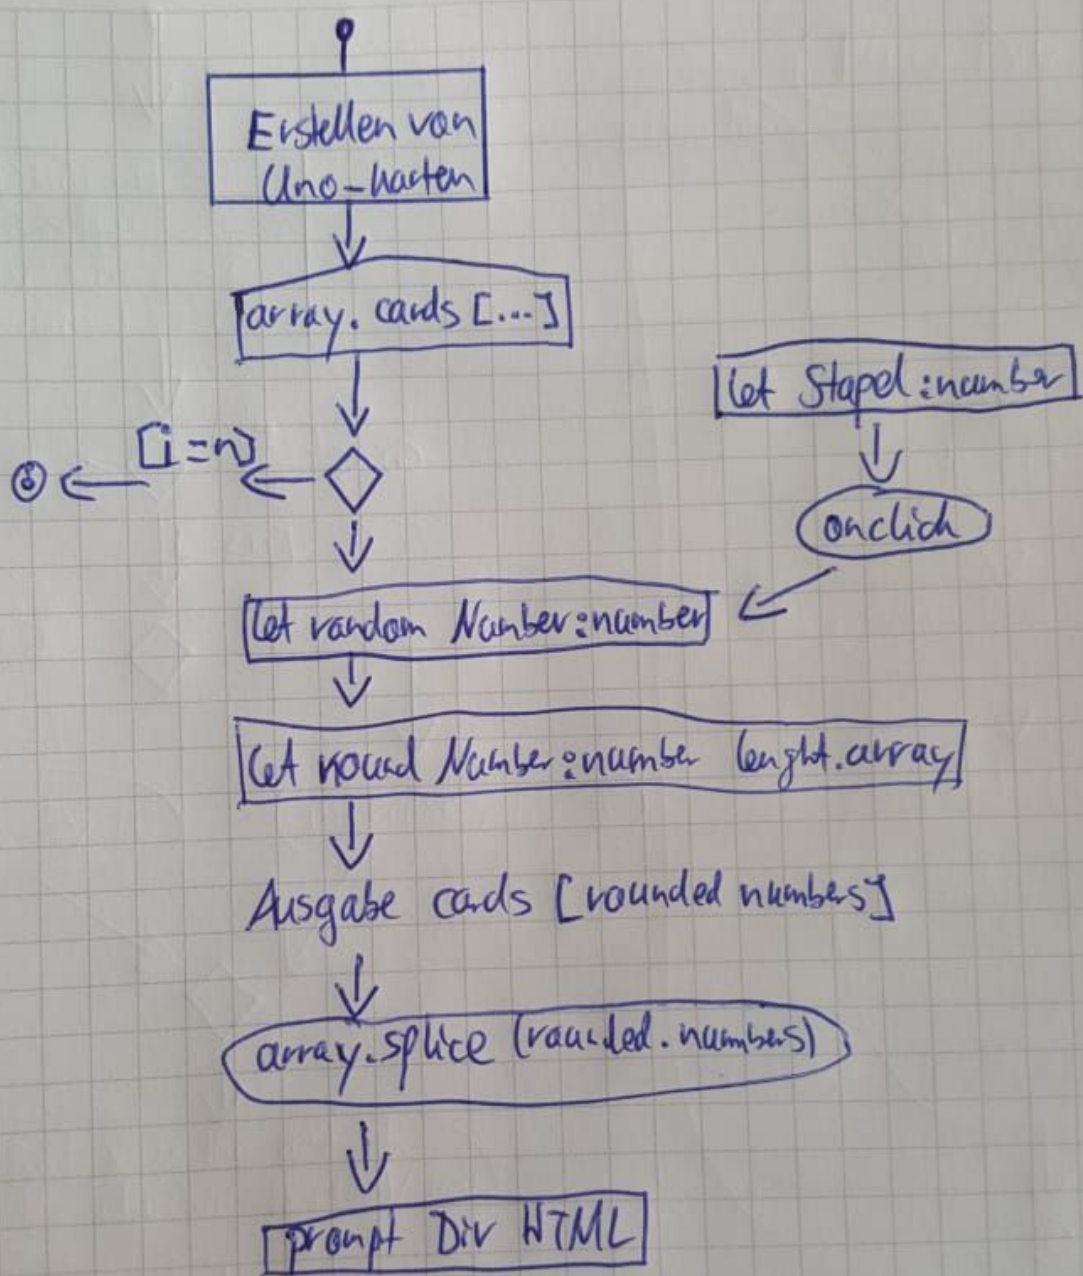 Erstellen von
Uno-Karten
array. cards [...]
let Stapel:number
[i=n]
onclick
let random Number:number
let round Number:number lenght.array
Ausgabe cards [rounded numbers]
array.splice (rounded.numbers)
prompt Div HTML